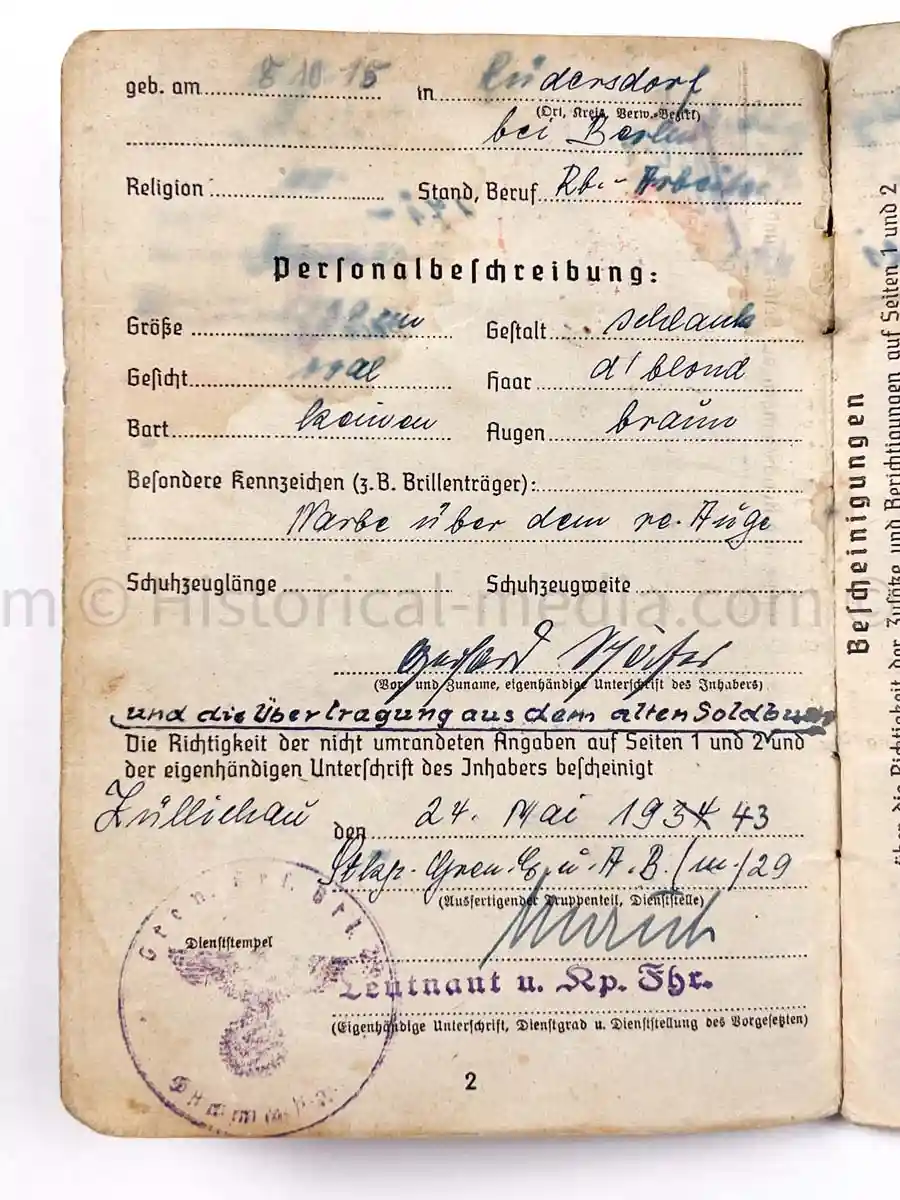 geb. am 8 10 15 in Rüdersdorf
(Ort, Kreis, Verw.-Bezirk)
bei Berlin
Religion Stand, Beruf Rb.- Arbeiter
Personalbeschreibung:
Größe cm Gestalt schlank
Gesicht oval Haar d'blond
Bart keinen Augen braun
Besondere Kennzeichen (z.B. Brillenträger):
Narbe über dem re. Auge
Schuhzeuglänge Schuhzeugweite
m © Historical-media.com ©
Gerhard
(Vor- und Zuname, eigenhändige Unterschrift des Inhabers)
und die Übertragung aus dem alten Soldbuch
Die Richtigkeit der nicht umrandeten Angaben auf Seiten 1 und 2 und
der eigenhändigen Unterschrift des Inhabers bescheinigt
Züllichau
den 24. Mai 1934 43
Stkp. Gren. E. u. A. B. (m.) 29
(Ausfertigender Truppenteil, Dienststelle)
Dienststempel
Leutnant u. Kp. Fhr.
(Eigenhändige Unterschrift, Dienstgrad u. Dienststellung des Vorgesetzten)
2
Bescheinigungen
über die Richtigkeit der Zusätze und Berichtigungen auf Seiten 1 und 2